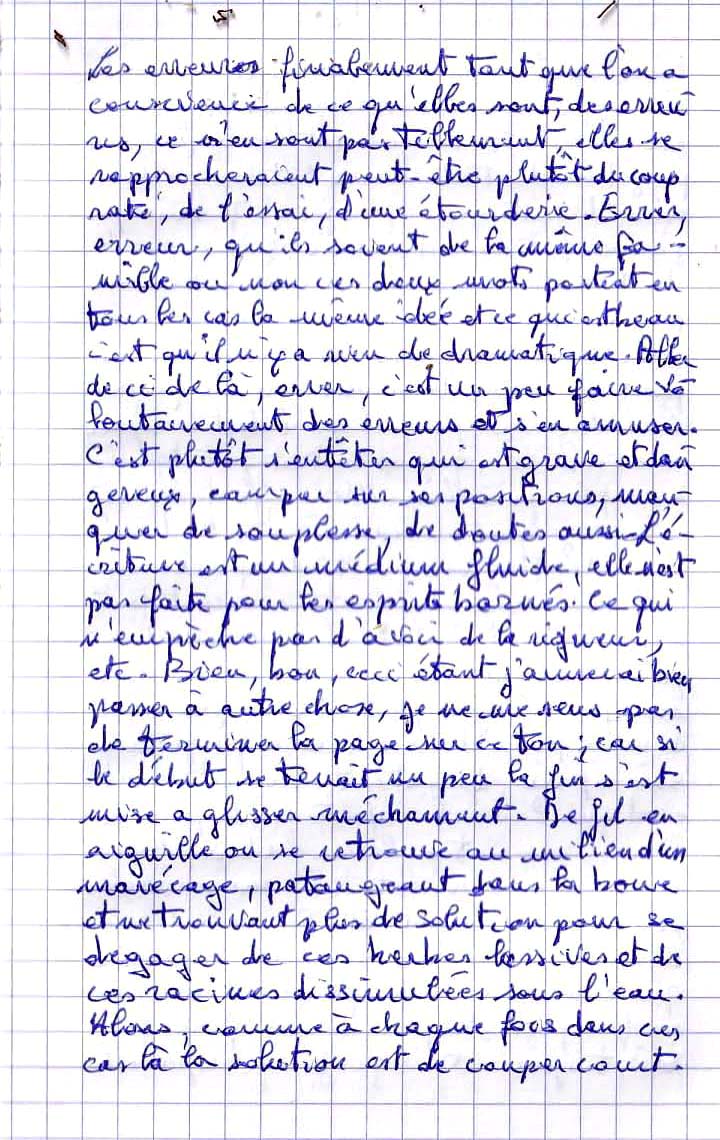 Les erreures finalement tant que l'on a
conscience de ce qu'elles sont, des erreu
res, ce n'en sont pas tellement, elles se
rapprocheraient peut-être plutôt du coup
raté, de l'essai, d'une étourderie. Errer,
erreur, qu'ils soient de la même fa-
mille ou non ces deux mots portent en
tous les cas la même idée et ce qui est beau
c'est qu'il n'y a rien de dramatique. Aller
de ci de là, errer, c'est un peu faire vo
lontairement des erreurs et s'en amuser.
C'est plutôt s'entêter qui est grave et dan
gereux, camper sur ses positions, man-
quer de souplesse, de doutes aussi. L'é-
criture est un médium fluide, elle n'est
pas faite pour les esprits bornés. Ce qui
n'empêche pas d'avoir de la rigueur,
etc. Bien, bon, ceci étant j'aimerai bien
passer à autre chose, je ne me sens pas
de terminer la page sur ce ton ; car si
le début se tenait un peu la fin s'est
mise a glisser méchamment. De fil en
aiguille on se retrouve au milieu d'un
marécage, pataugeant dans la boue
et ne trouvant plus de solution pour se
degager de ces herbes lassives et de
ces racines dissimulées sous l'eau.
Alors, comme à chaque fois dans ces
cas là la solution est de couper court.